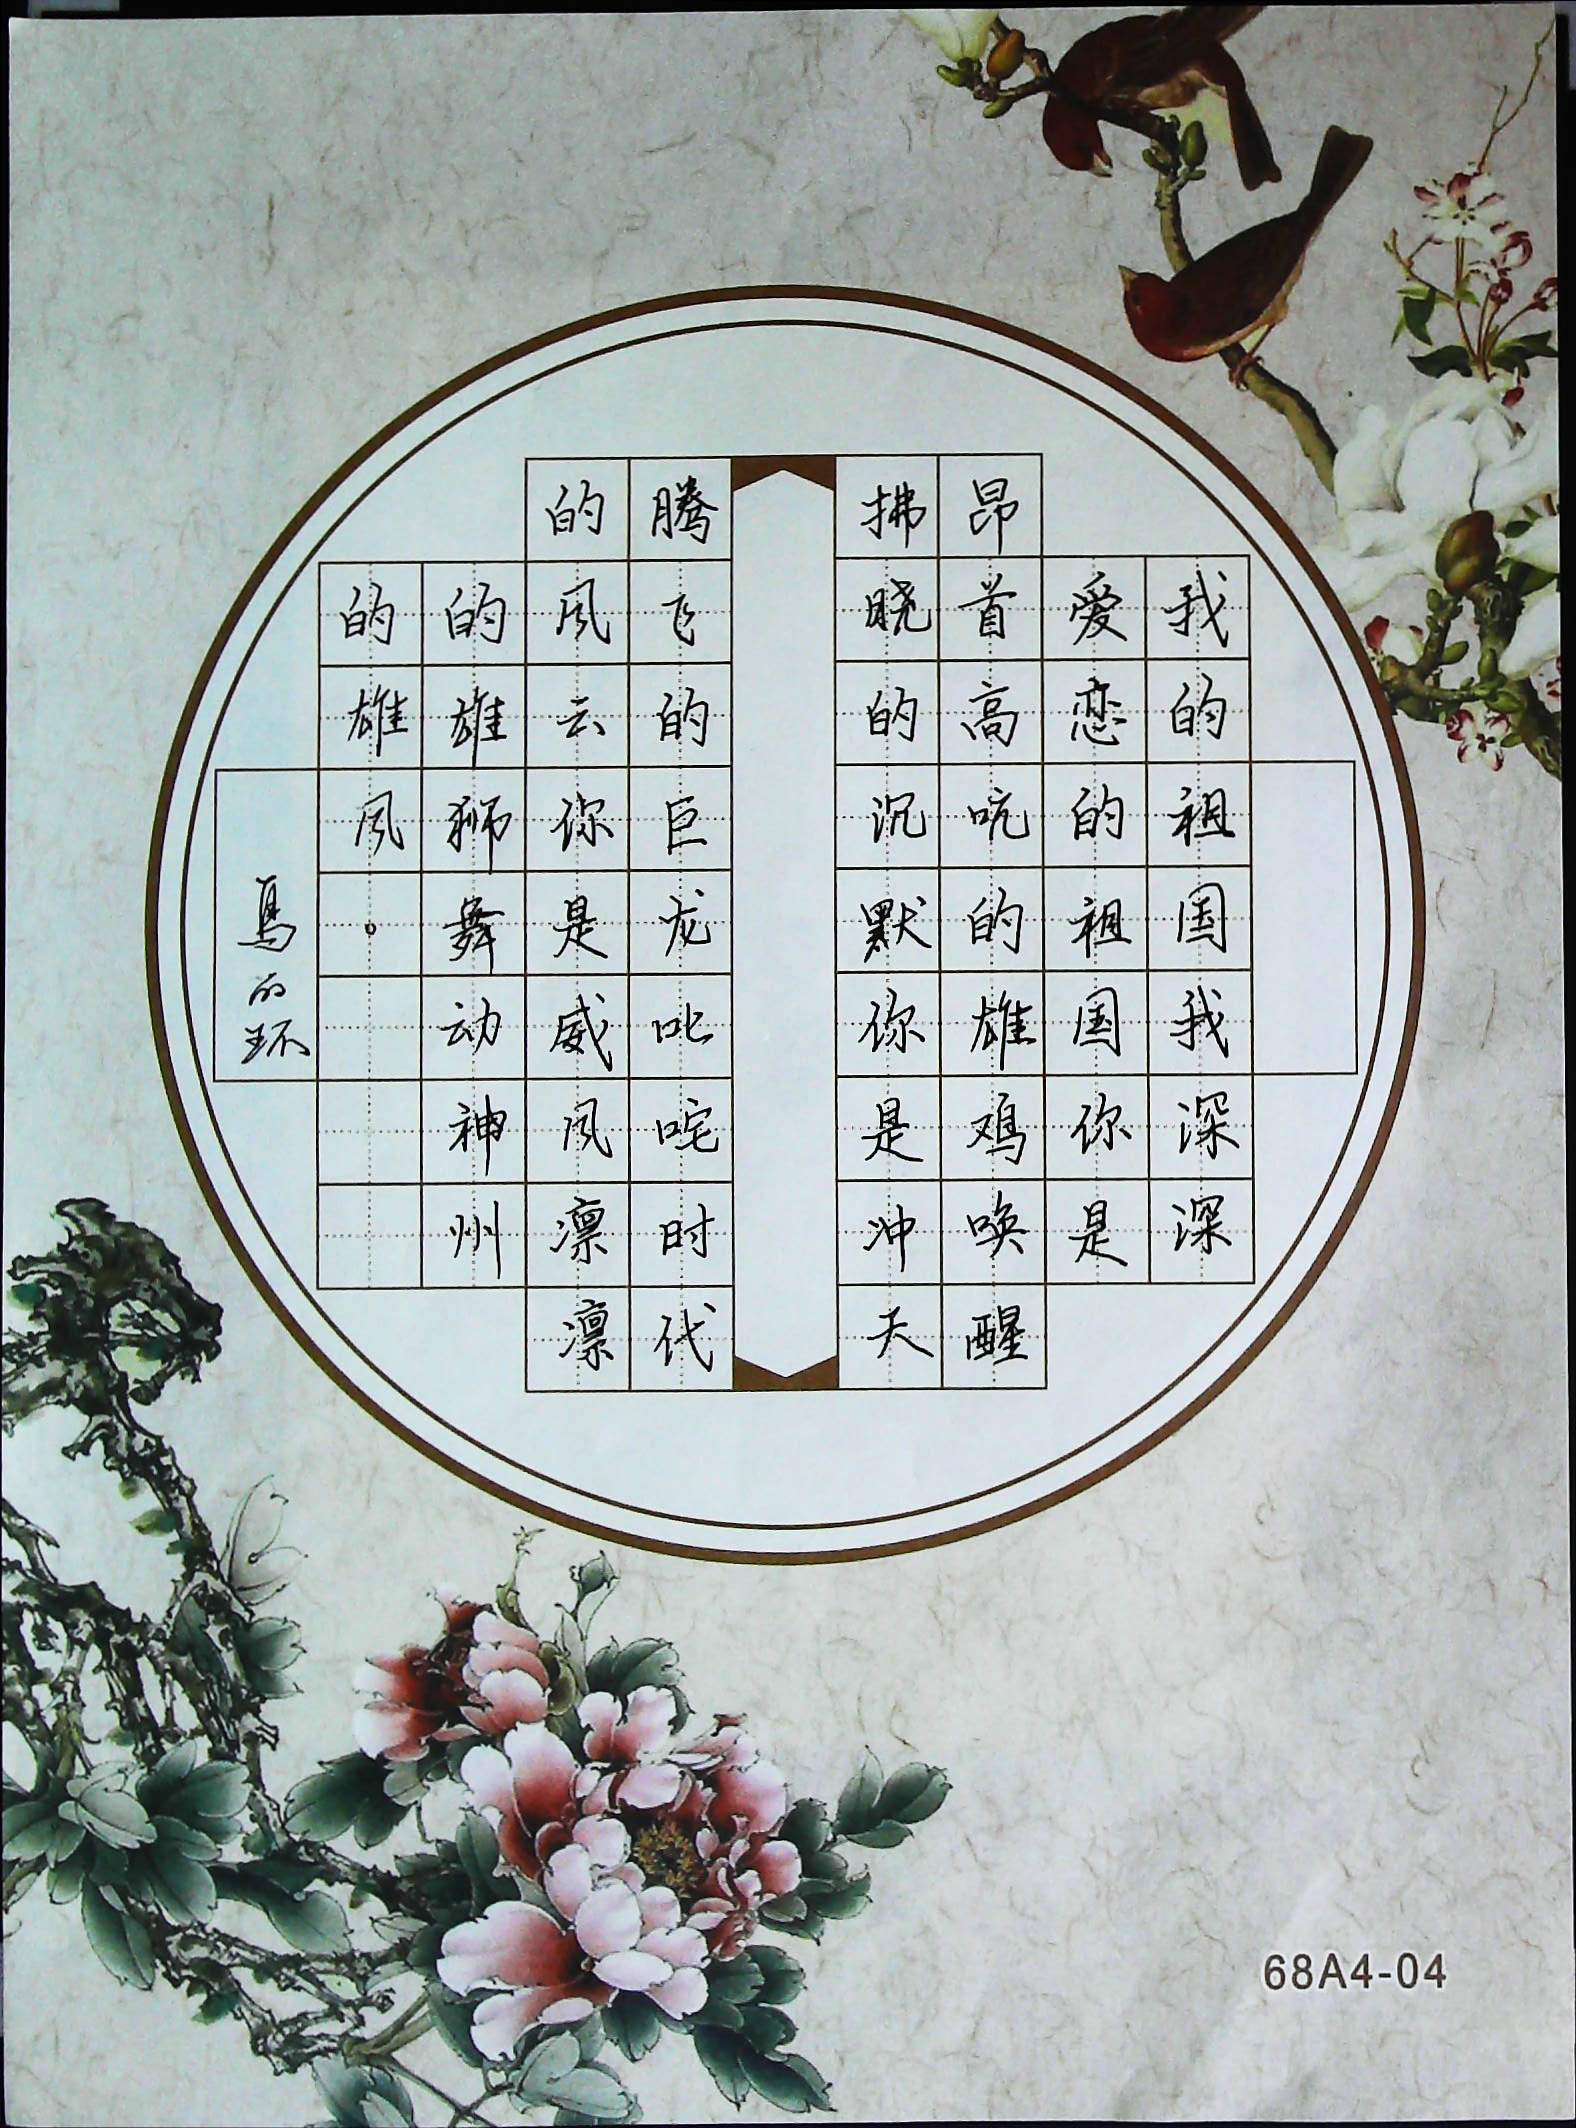 我的祖国我深深
爱恋的祖国你是
昂首高吭的雄鸡唤醒
拂晓的沉默你是冲天
腾飞的巨龙叱咤时代
的风云你是威风凛凛
的雄狮舞动神州
的雄风。
68A4-04